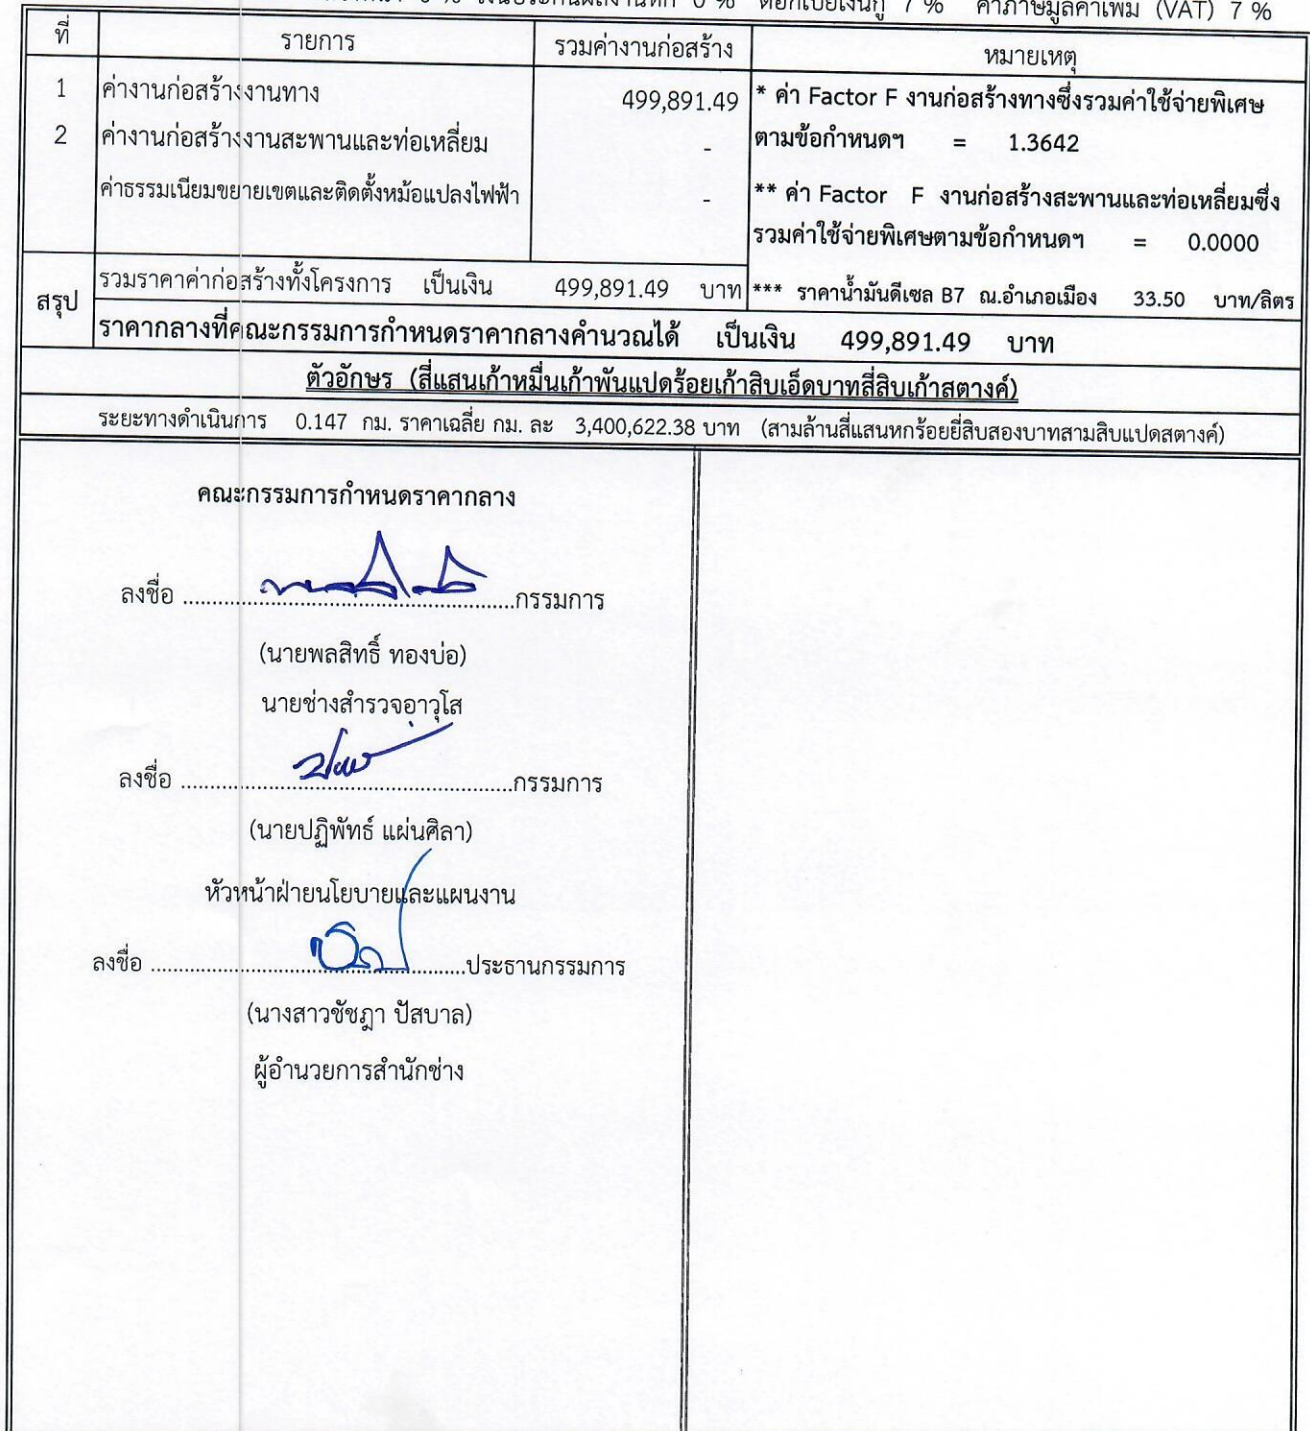 0 % เงินประกันผลงานหัก 0 % ดอกเบี้ยเงินกู้ 7 % ค่าภาษีมูลค่าเพิ่ม (VAT) 7 %
ที่ รายการ รวมค่างานก่อสร้าง หมายเหตุ
1 ค่างานก่อสร้างงานทาง 499,891.49 * ค่า Factor F งานก่อสร้างทางซึ่งรวมค่าใช้จ่ายพิเศษ
2 ค่างานก่อสร้างงานสะพานและท่อเหลี่ยม - ตามข้อกำหนดฯ = 1.3642
ค่าธรรมเนียมขยายเขตและติดตั้งหม้อแปลงไฟฟ้า - ** ค่า Factor F งานก่อสร้างสะพานและท่อเหลี่ยมซึ่ง
รวมค่าใช้จ่ายพิเศษตามข้อกำหนดฯ = 0.0000
สรุป รวมราคาค่าก่อสร้างทั้งโครงการ เป็นเงิน 499,891.49 บาท *** ราคาน้ำมันดีเซล B7 ณ.อำเภอเมือง 33.50 บาท/ลิตร
ราคากลางที่คณะกรรมการกำหนดราคากลางคำนวณได้ เป็นเงิน 499,891.49 บาท
ตัวอักษร (สี่แสนเก้าหมื่นเก้าพันแปดร้อยเก้าสิบเอ็ดบาทสี่สิบเก้าสตางค์)
ระยะทางดำเนินการ 0.147 กม. ราคาเฉลี่ย กม. ละ 3,400,622.38 บาท (สามล้านสี่แสนหกร้อยยี่สิบสองบาทสามสิบแปดสตางค์)
คณะกรรมการกำหนดราคากลาง
ลงชื่อ ..........................................................กรรมการ
(นายพลสิทธิ์ ทองบ่อ)
นายช่างสำรวจอาวุโส
ลงชื่อ ..........................................................กรรมการ
(นายปฏิพัทธ์ แผ่นศิลา)
หัวหน้าฝ่ายนโยบายและแผนงาน
ลงชื่อ .......................................................ประธานกรรมการ
(นางสาวชัชฎา ปัสบาล)
ผู้อำนวยการสำนักช่าง